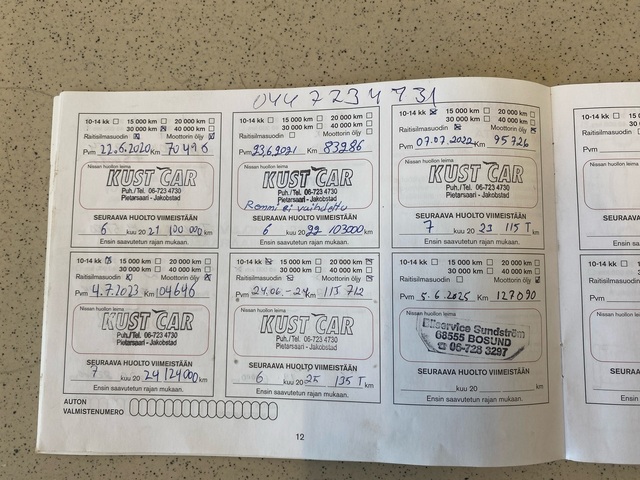 044 7234 731
10-14 kk 15 000 km 20 000 km
30 000 km 40 000 km
Raitisilmasuodin Moottorin öljy
Pvm 22.6.2020 Km 70416
Nissan huollon leima
KUST CAR
Puh./Tel. 06-723 4730
Pietarsaari - Jakobstad
SEURAAVA HUOLTO VIIMEISTÄÄN
6 kuu 20 21 100 000 km
Ensin saavutetun rajan mukaan.
10-14 kk 15 000 km 20 000 km
30 000 km 40 000 km
Raitisilmasuodin Moottorin öljy
Pvm 23.6.2021 Km 83286
Nissan huollon leima
KUST CAR
Puh./Tel. 06-723 4730
Pietarsaari - Jakobstad
ei vaihdettu
SEURAAVA HUOLTO VIIMEISTÄÄN
6 kuu 20 22 103000 km
Ensin saavutetun rajan mukaan.
10-14 kk 15 000 km 20 000 km
30 000 km 40 000 km
Raitisilmasuodin Moottorin öljy
Pvm 07.07.2022 Km 95726
Nissan huollon leima
KUST CAR
Puh./Tel. 06-723 4730
Pietarsaari - Jakobstad
SEURAAVA HUOLTO VIIMEISTÄÄN
7 kuu 20 23 115 T km
Ensin saavutetun rajan mukaan.
10-14 kk 15 000 km 20 000 km
30 000 km 40 000 km
Raitisilmasuodin Moottorin öljy
Pvm 4.7.2023 Km 104646
Nissan huollon leima
KUST CAR
Puh./Tel. 06-723 4730
Pietarsaari - Jakobstad
SEURAAVA HUOLTO VIIMEISTÄÄN
7 kuu 20 24 124000 km
Ensin saavutetun rajan mukaan.
10-14 kk 15 000 km 20 000 km
30 000 km 40 000 km
Raitisilmasuodin Moottorin öljy
Pvm 24.06.-24 Km 115 712
Nissan huollon leima
KUST CAR
Puh./Tel. 06-723 4730
Pietarsaari - Jakobstad
SEURAAVA HUOLTO VIIMEISTÄÄN
6 kuu 20 25 135 T km
Ensin saavutetun rajan mukaan.
10-14 kk 15 000 km 20 000 km
30 000 km 40 000 km
Raitisilmasuodin Moottorin öljy
Pvm 5.6.2025 Km 127090
Nissan huollon leima
Bilservice Sundström
68555 BOSUND
☎ 06-728 3297
SEURAAVA HUOLTO VIIMEISTÄÄN
kuu 20 km
Ensin saavutetun rajan mukaan.
AUTON
VALMISTENUMERO
12
10-14 kk
Raitisilmasuodin
Pvm
Nissan huollon
SEURAAVA
Ensin
10-14 kk
Raitisilmasuodin
Pvm
Nissan huollon
SEURAAVA
Ensin